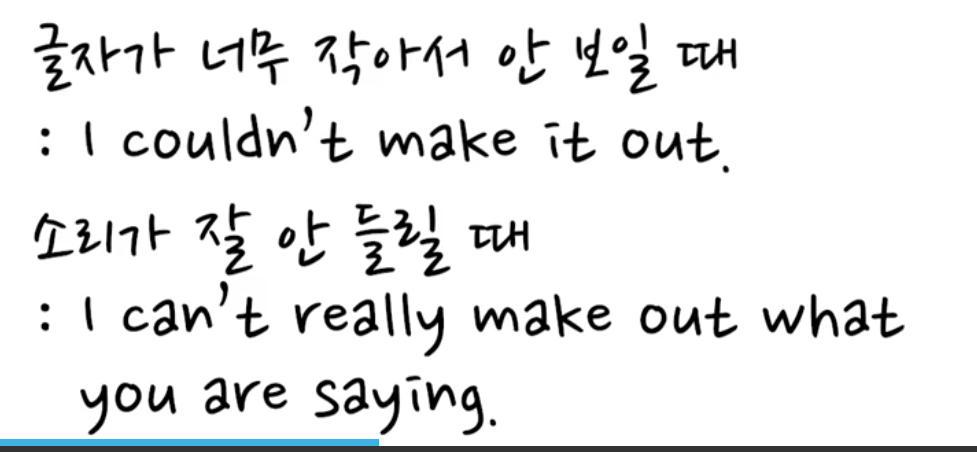 글자가 너무 작아서 안 보일 때
: I couldn't make it out.
소리가 잘 안 들릴 때
: I can't really make out what
you are saying.